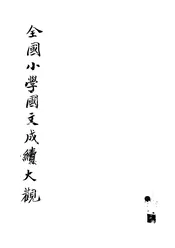 全國小學國文成績大觀